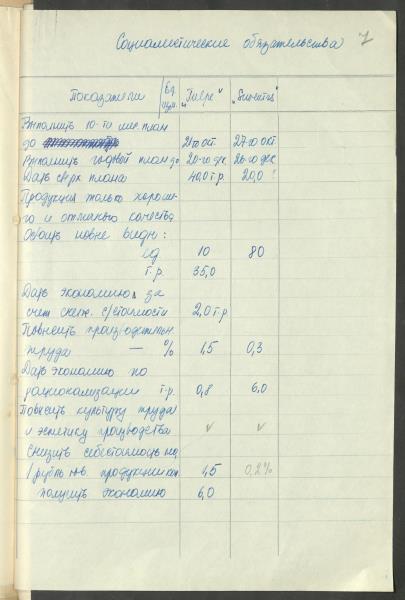 Социалистические обязательства 7
Показатели Ед. изм. "Виентиц"
Выполнить 10-ти мес. план
до 21го окт. 27-го окт.
Выполнить годовой план до 20-го дек 26-го дек
Дать сверх плана 40,0 т.р 20,0
Продукция только хороше-
го и отличного качества
Освоить новые виды:
ед 10 80
т.р. 35,0
Дать экономию за
счет сниж. с/стоимости 2,0 т.р
Повысить производительн.
труда — % 1,5 0,3
Дать экономию по
рационализации т.р. 0,8 6,0
Повысить культуру труда
и эстетику производства v v
Снизить себестоимость на
1 рубль тов. продукции 1,5 0,2%
получить экономию 6,0